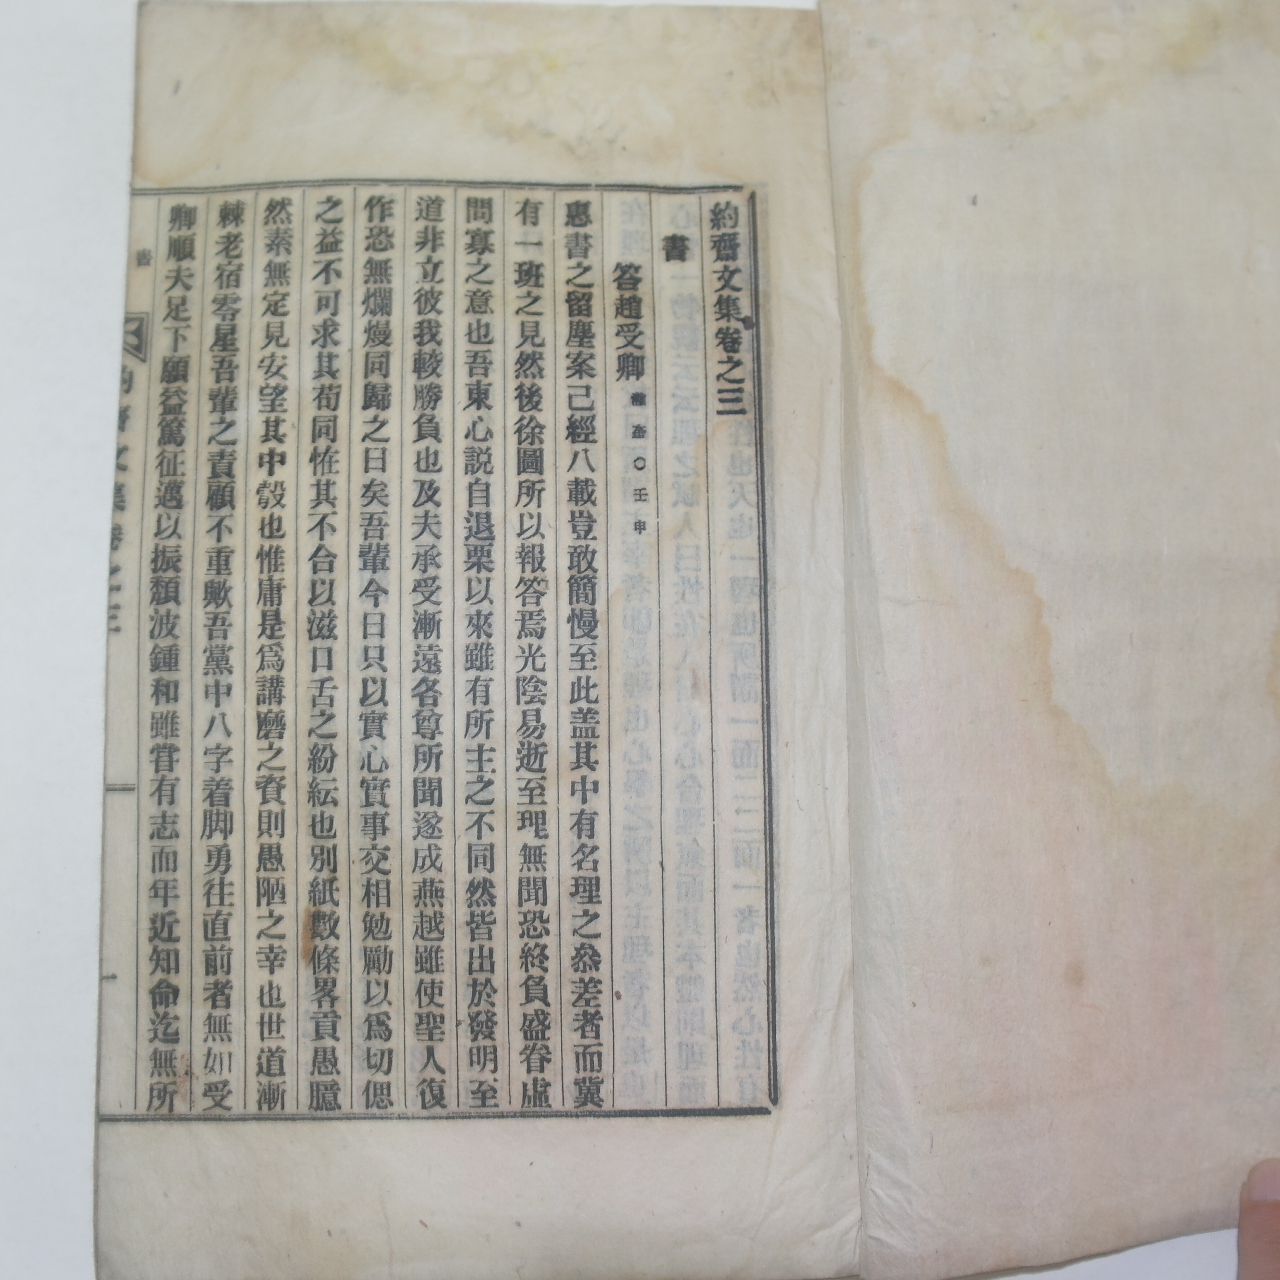 約齋文集卷之三
書
答趙受卿 ○壬申
惠書之留塵案己經八載豈敢簡慢至此盖其中有名理之叅差者而冀
有一班之見然後徐圖所以報答焉光陰易逝至理無聞恐終負盛眷虛
問寡之意也吾東心説自退栗以來雖有所主之不同然皆出於發明至
道非立彼我較勝負也及夫承受漸遠各尊所聞遂成燕越雖使聖人復
作恐無爛熳同歸之日矣吾輩今日只以實心實事交相勉勵以爲切偲
之益不可求其苟同恠其不合以滋口舌之紛紜也別紙數條畧貢愚臆
然素無定見安望其中彀也惟庸是爲講磨之資則愚陋之幸也世道漸
棘老宿零星吾輩之責顧不重歟吾黨中八字着脚勇往直前者無如受
卿順夫足下願益篤征邁以振頹波鍾和雖甞有志而年近知命迄無所
書
約齋文集卷之三
一